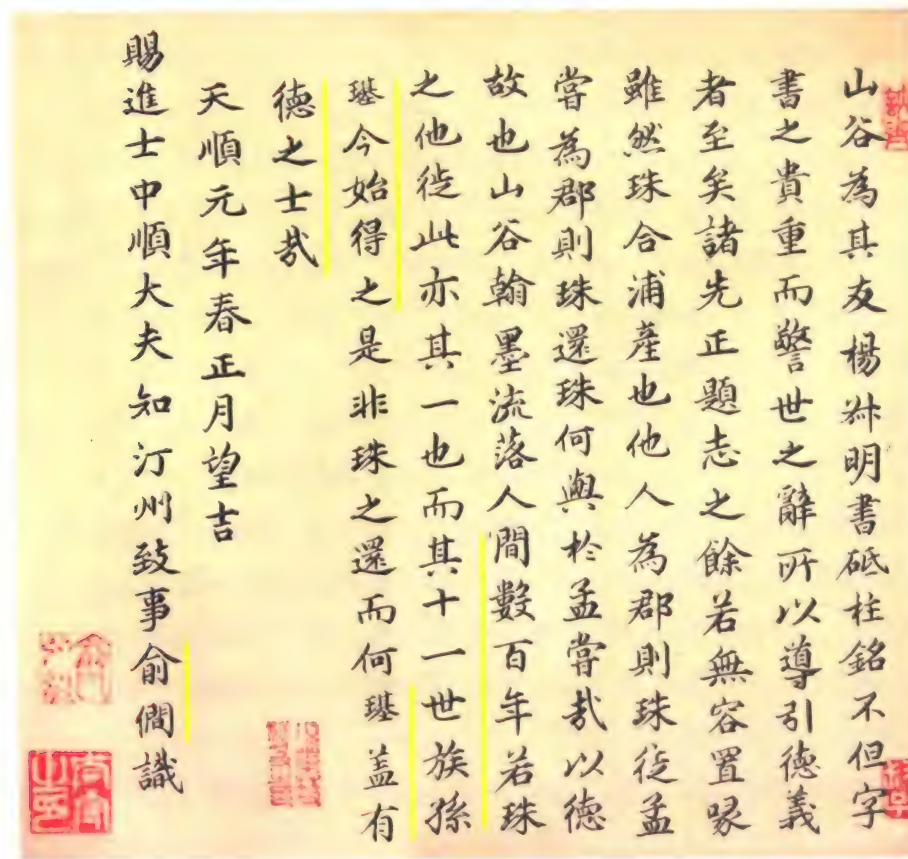 山谷為其友楊叔明書砥柱銘不但字
書之貴重而警世之辭所以導引德義
者至矣諸先正題志之餘若無容置喙
雖然珠合浦產也他人為郡則珠徙孟
嘗為郡則珠還珠何與於孟嘗哉以德
故也山谷翰墨流落人間數百年若珠
之他徙此亦其一也而其十一世族孫
璂今始得之是非珠之還而何璂盖有
德之士哉
天順元年春正月望吉
賜進士中順大夫知汀州致事俞僩識